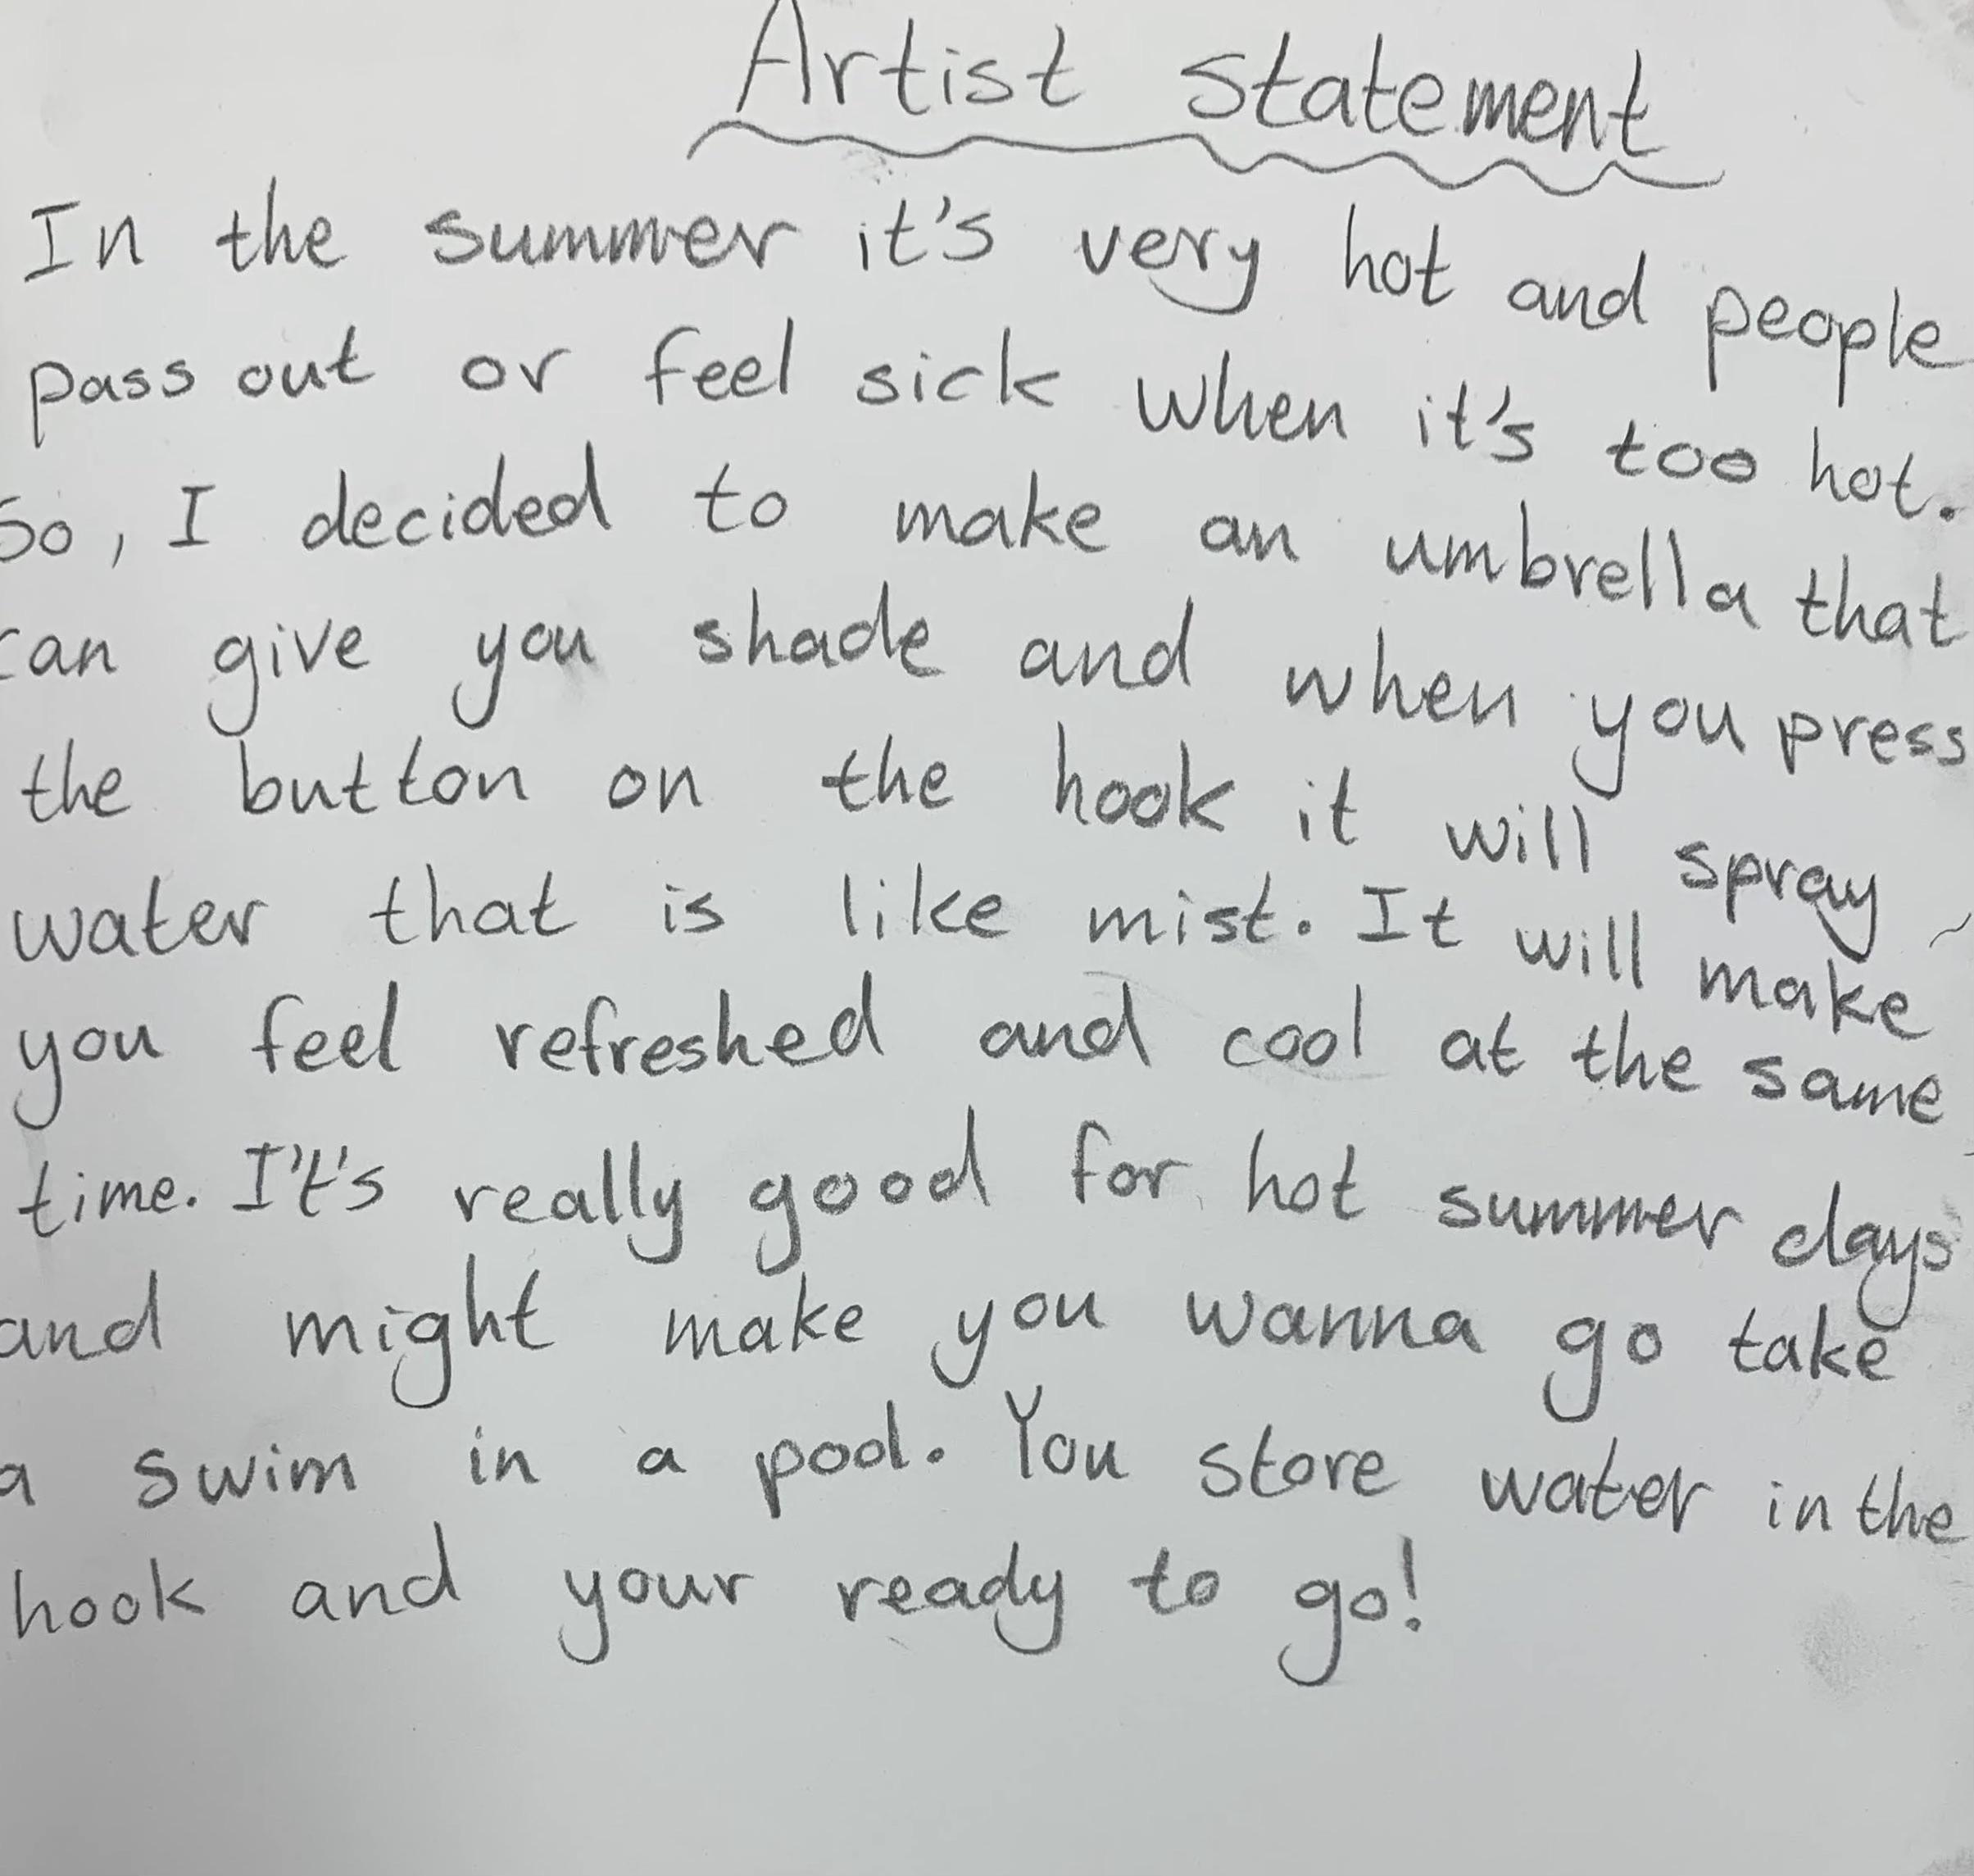 Artist Statement
In the summer it's very hot and people
pass out or feel sick when it's too hot.
So, I decided to make an umbrella that
can give you shade and when you press
the button on the hook it will spray
water that is like mist. It will make
you feel refreshed and cool at the same
time. I't's really good for hot summer days
and might make you wanna go take
a swim in a pool. You store water in the
hook and your ready to go!